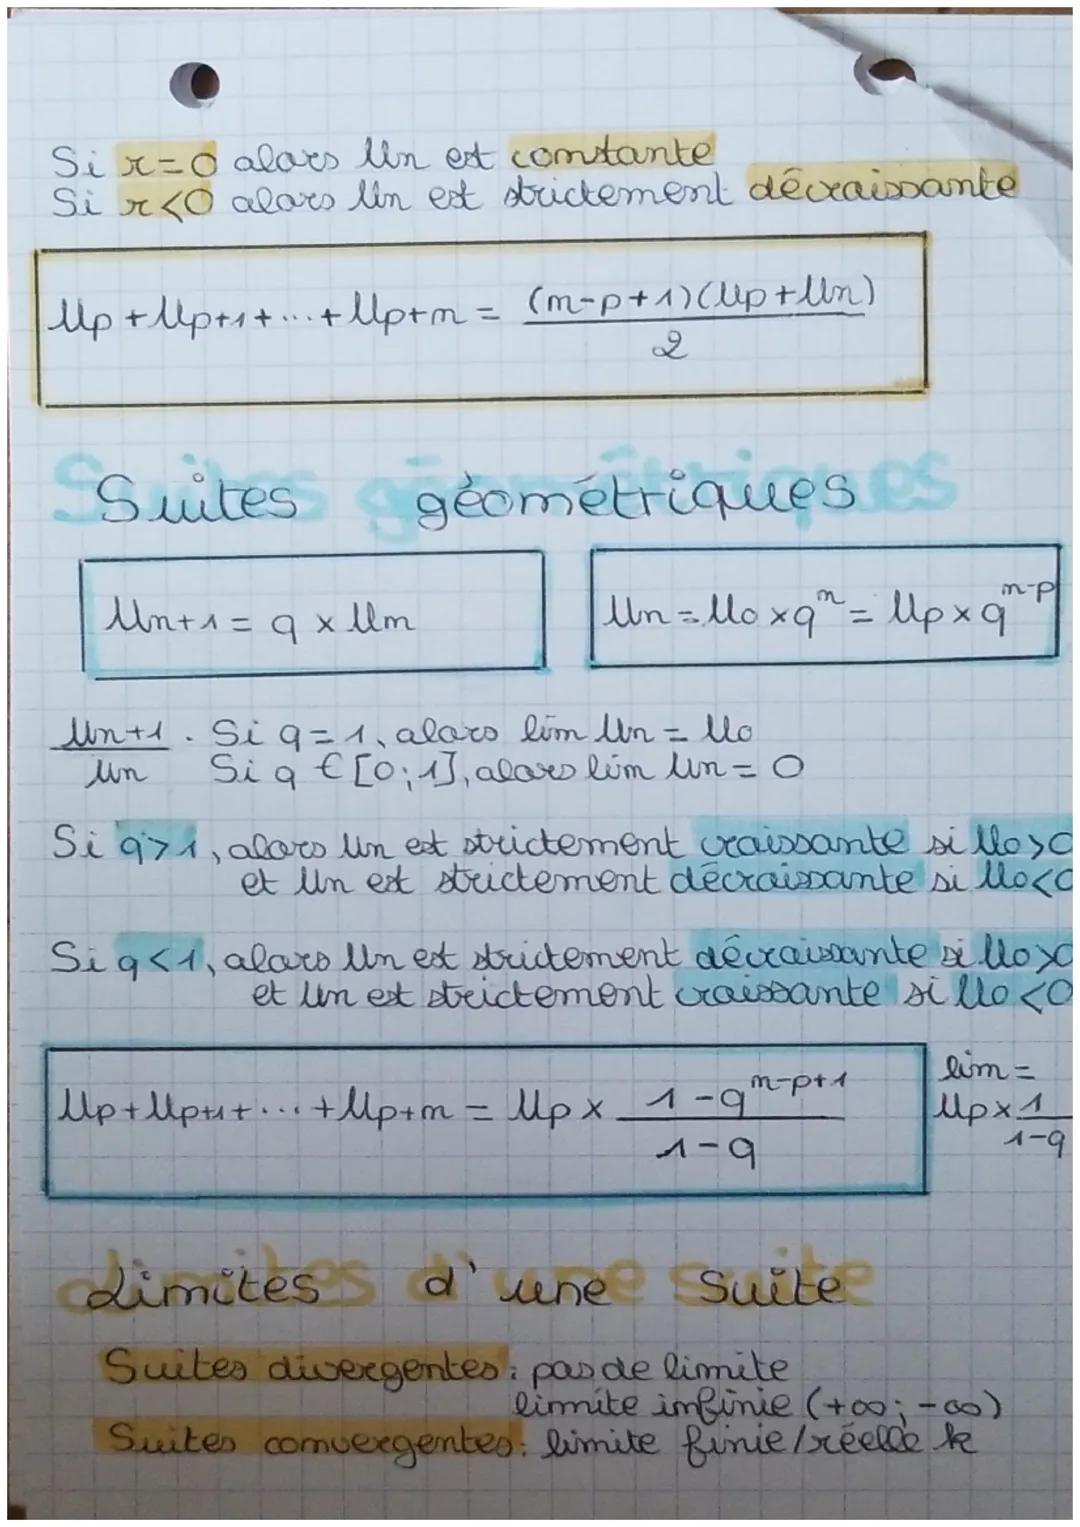 Si r=0 alors Un est constante
Si r<0 alors Un est strictement décroissante
Up + Up+1 + ... + Up+n = (n-p+1)(Up+Un)
2
Suites géométriques
Un+1 = q x Un
Un = U0 x q^n = Up x q^n-p
Un+1 . Si q=1, alors lim Un = U0
Un Si q € [0;1], alors lim Un = 0
Si q>1, alors Un est strictement croissante si U0>0
et Un est strictement décroissante si U0<0
Si q<1, alors Un est strictement décroissante si U0>0
et Un est strictement croissante si U0<0
Up + Up+1 + ... + Up+n = Up x 1-q^n-p+1
1-q
lim =
Up x 1
1-q
Limites d'une suite
Suites divergentes : pas de limite
limite infinie (+∞; -∞)
Suites convergentes : limite finie/réelle k